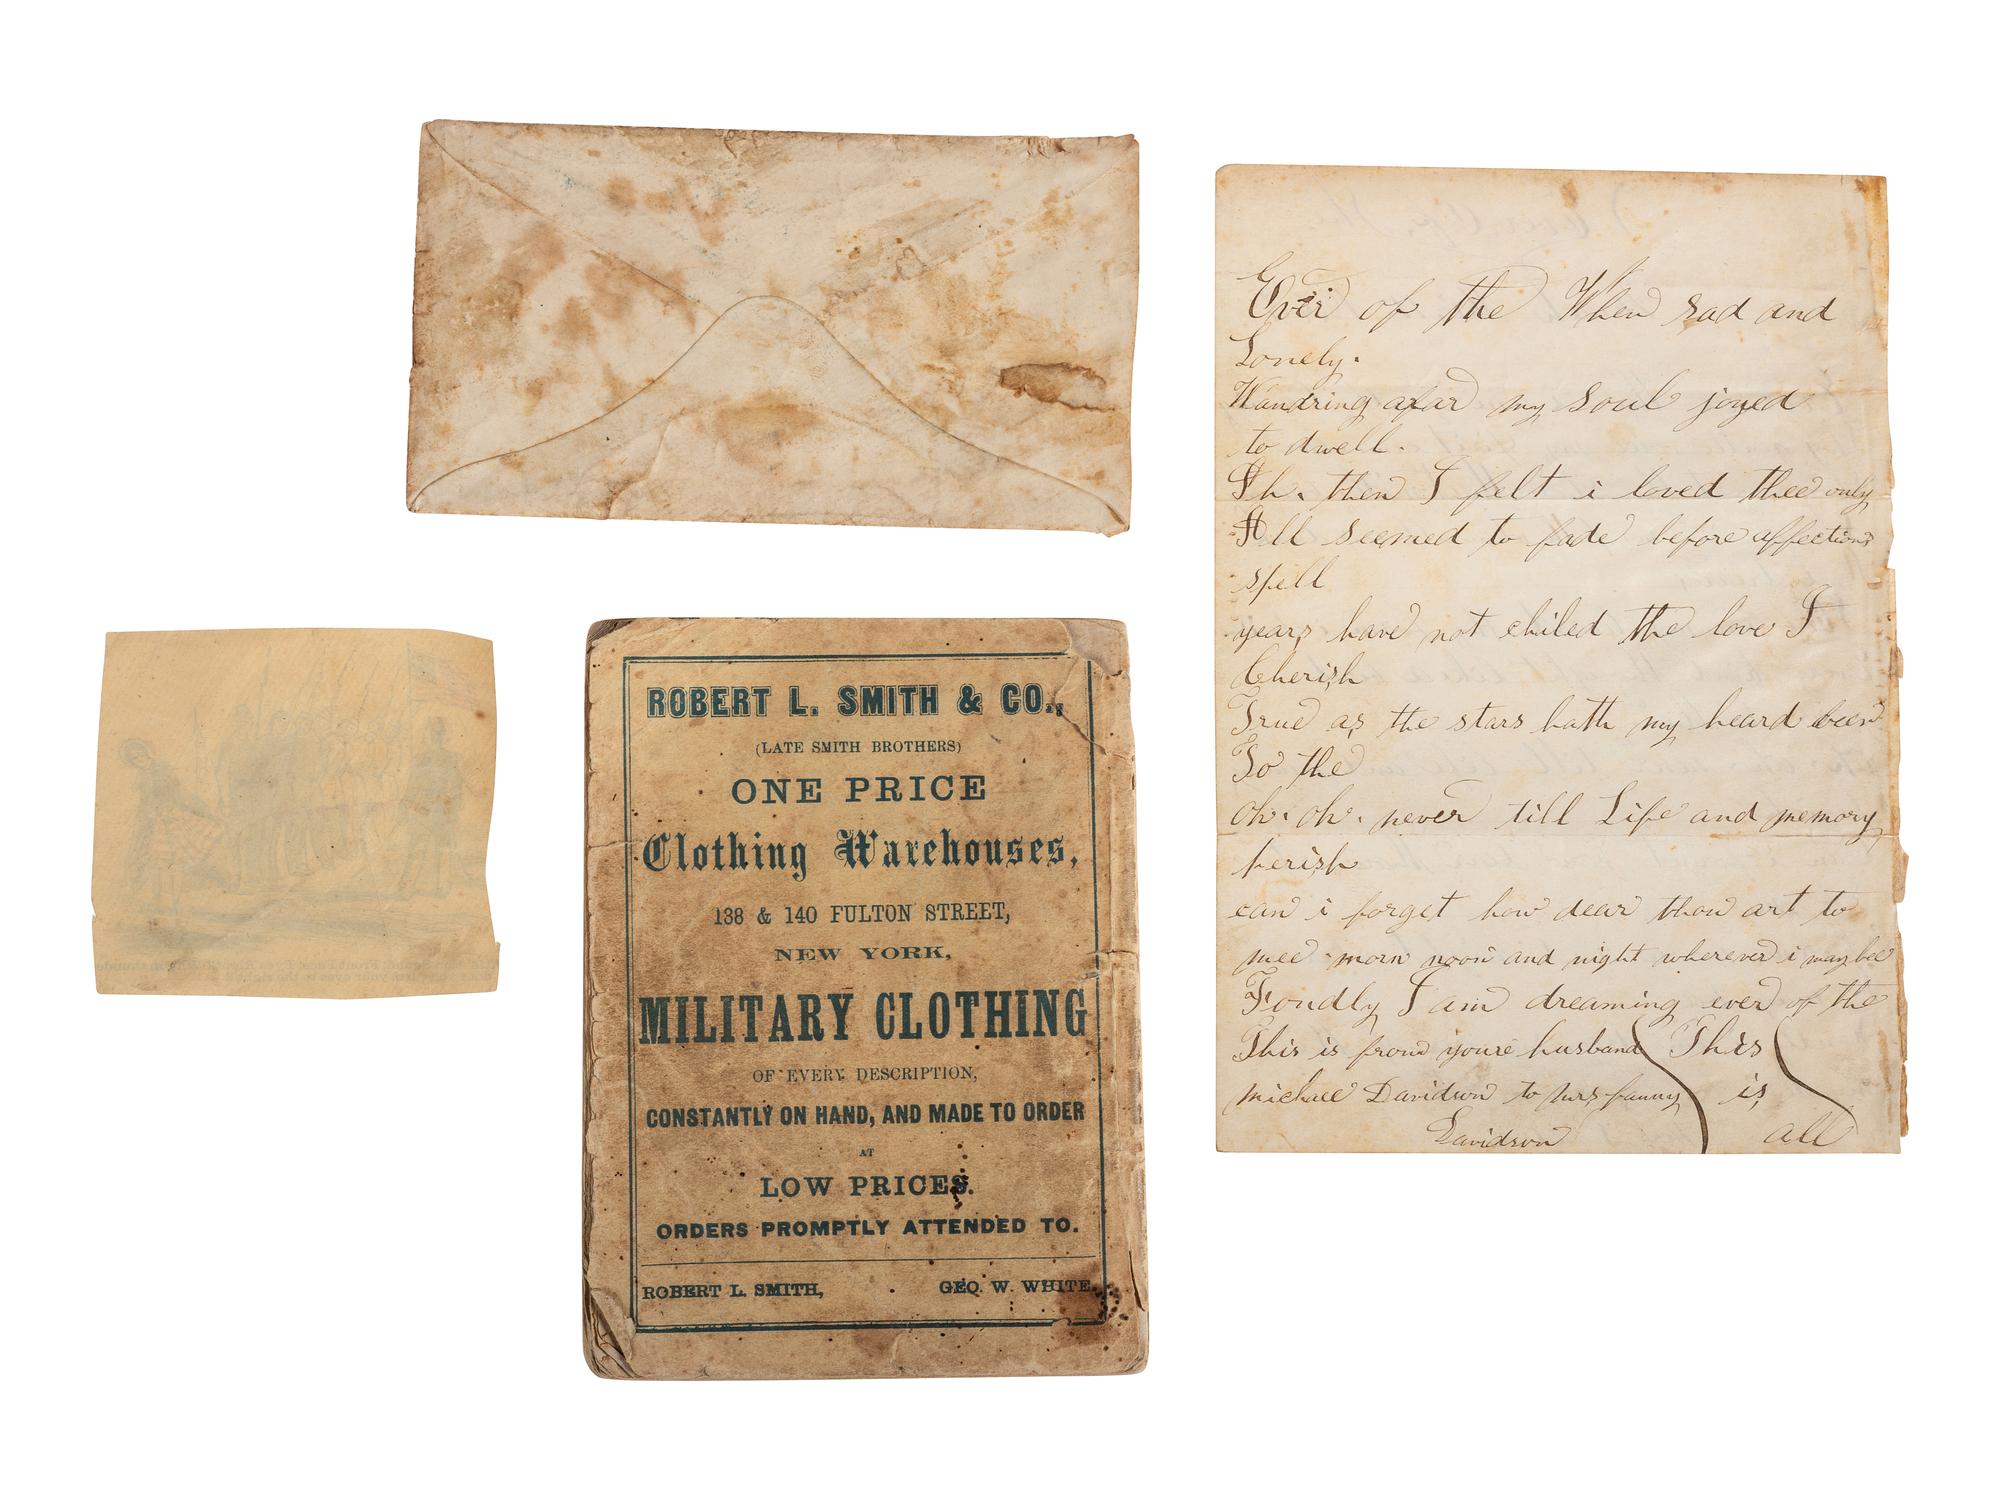 Ever of the When sad and
Lonely.
Wandring afar my soul joyed
to dwell.
Ah. then I felt i loved thee only
All seemed to fade before affections
spell
years have not chiled the love I
Cherish
True as the stars hath my heard been
To the
oh. oh. never till Life and memory
perish
can i forget how dear thou art to
mee morn noon and night wherever i may bee
Fondly I am dreaming ever of the
This is from youre husband This
michael Davidson to hirs fanny is
Davidson all
ROBERT L. SMITH & CO.,
(LATE SMITH BROTHERS)
ONE PRICE
Clothing Warehouses,
138 & 140 FULTON STREET,
NEW YORK,
MILITARY CLOTHING
OF EVERY DESCRIPTION,
CONSTANTLY ON HAND, AND MADE TO ORDER
AT
LOW PRICES.
ORDERS PROMPTLY ATTENDED TO.
ROBERT L. SMITH, GEO. W. WHITE